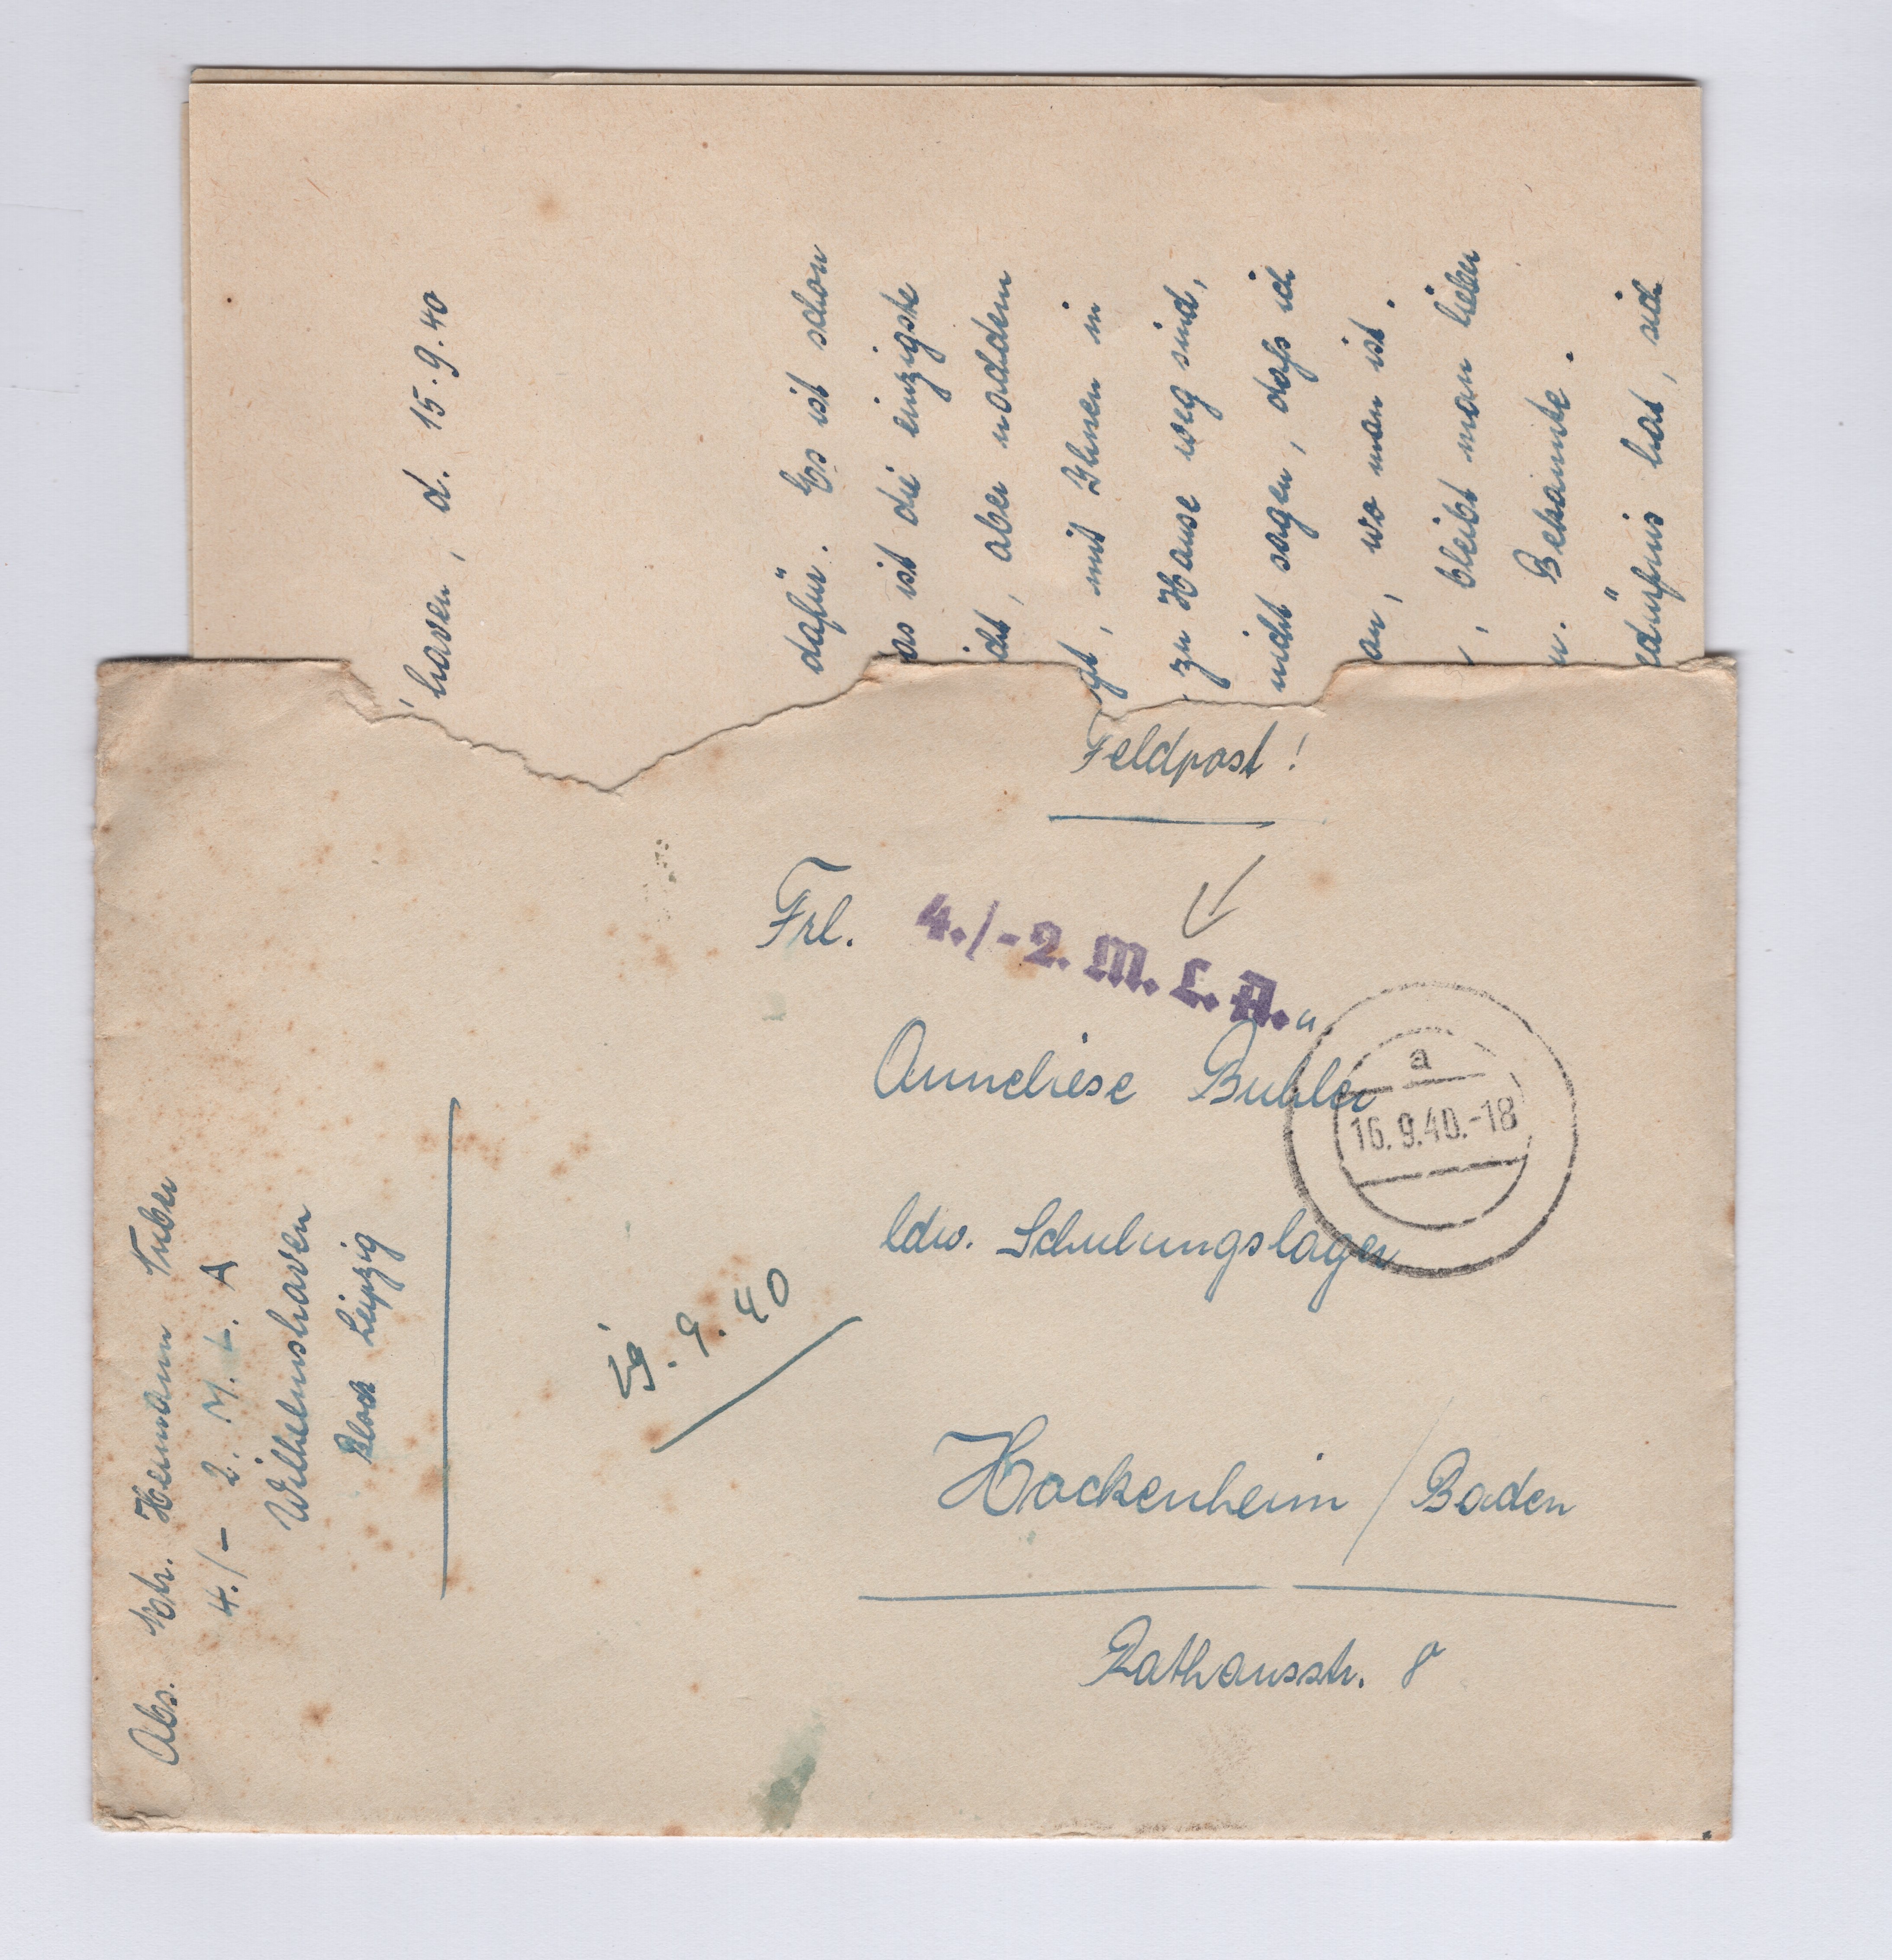 haven, d. 15.9.40
dafür. Es ist schon
as ist die einzigste
cht, aber nachdem
gt, mit Ihnen in
zu Hause weg sind,
nicht sagen, dass ich
an, wo man ist.
, bleibt man lieber
n. Bekannte.
edürfnis hat, sich
Feldpost!
Frl.
4./-2. M. L. A.
Anneliese Bühler
ldw. Schulungslager
Hockenheim / Baden
Rathausstr. 8
a
16.9.40.-18
9.40
Abs. Hermann
4./- 2. M. L. A
Wilhelmshaven
Block Leipzig